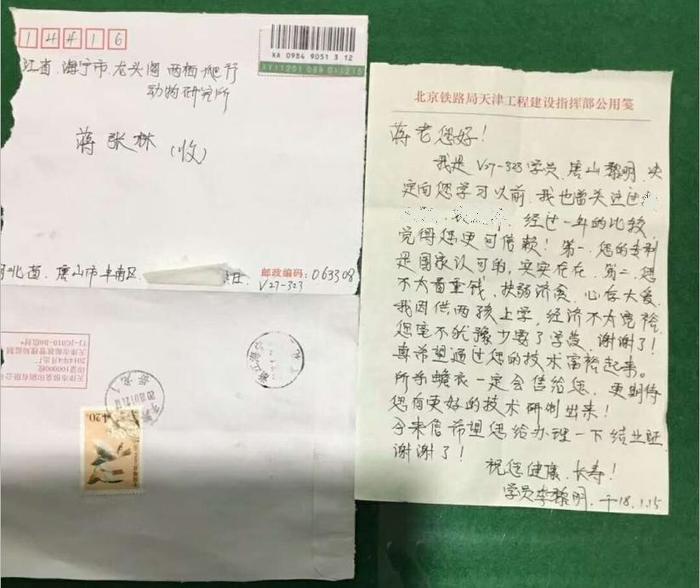 14416
XA 0984 9051 3 12
江省.海宁市.龙头阁两栖爬行
动物研究所
蒋张林(收)
河北省.唐山市丰南区
邮政编码:06330
V27-323
北京铁路局天津工程建设指挥部公用笺
蒋老您好!
我是V27-323学员.唐山黎明.决
定向您学习以前.我也曾关注过
经过一年的比较
觉得您更可信赖!第一.您的专利
是国家认可的.实实在在.第二.您
不太看重钱.扶弱济贫.心存大爱.
我因供两孩上学,经济不太宽裕
您毫不犹豫少要了学费.谢谢了!
真希望通过您的技术富裕起来。
所采蟾衣一定会售给您.更期待
您有更好的技术研创出来!
今来信希望您给办理一下结业证
谢谢了!
祝您健康.长寿!
学员李黎明.于18.1.15
天津市邮政管理局监制
2014年4月出厂
印量100000枚
4.20